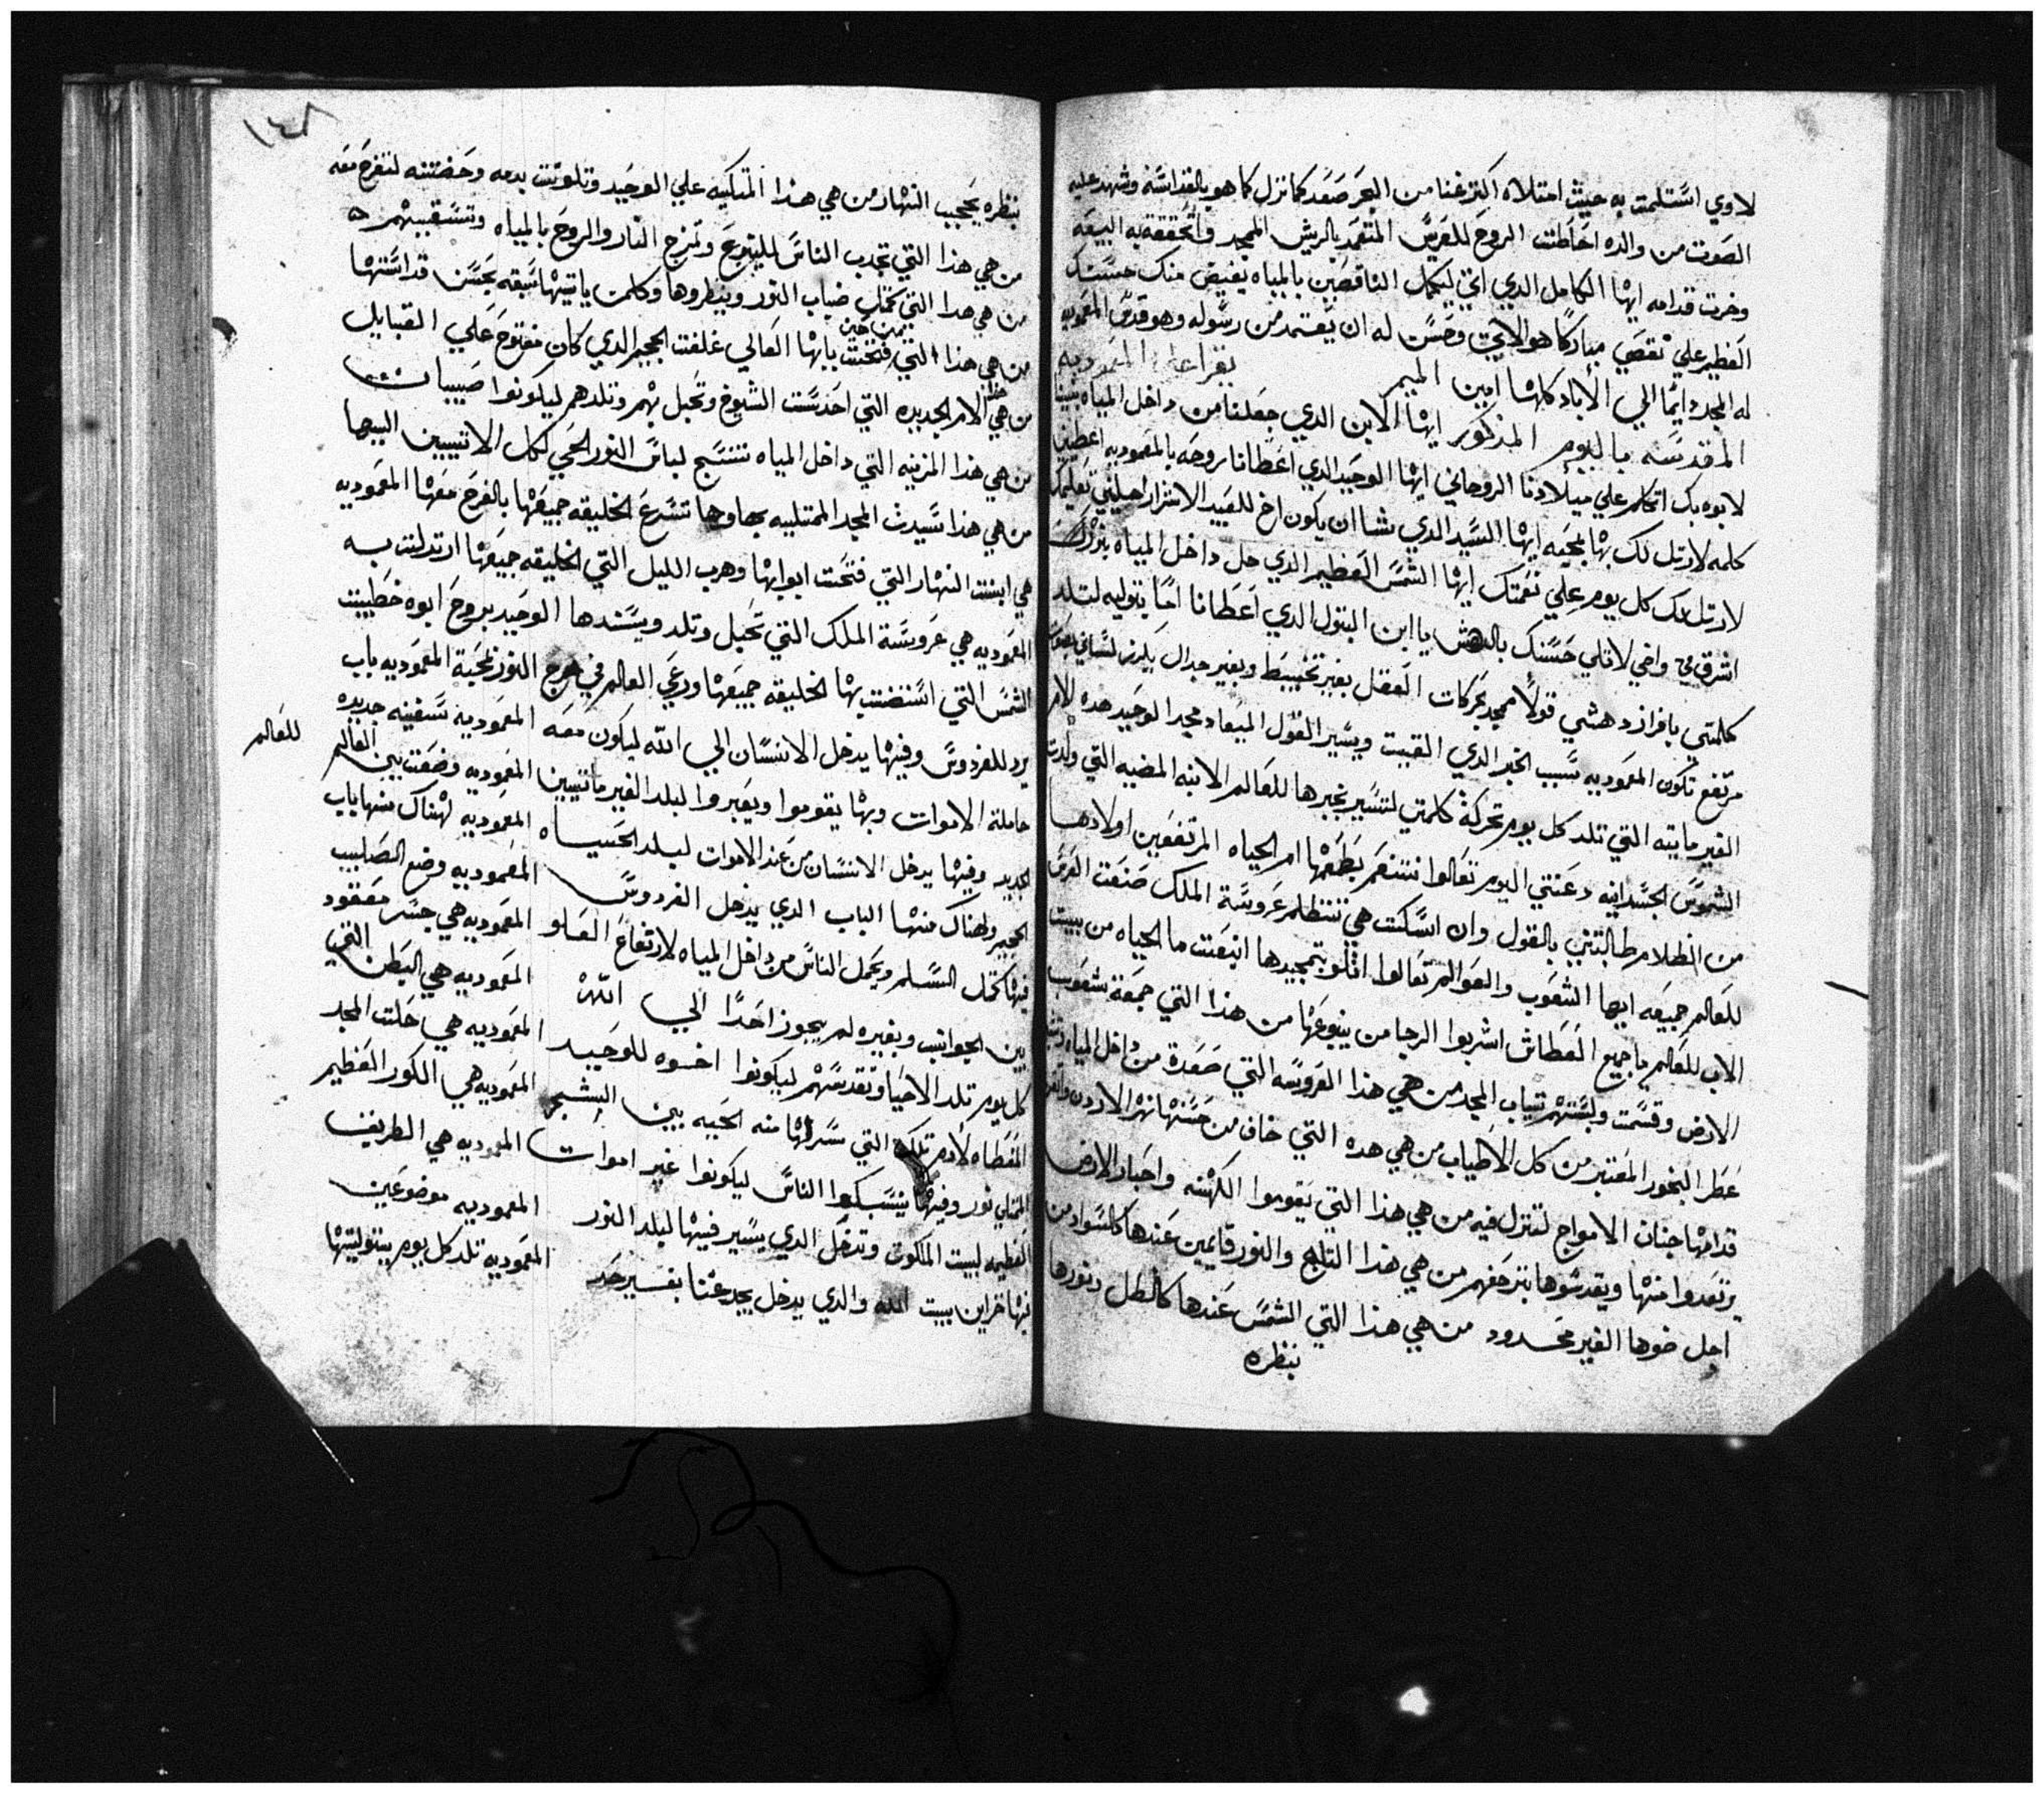 لاوي استلمت به حيث امتلاه اكثر غنا من البحر صعد كما نزل كما هو بالقداسه وشهد عليه
الصوت من والده احاطت الروح للعرس المتعمد بالريش الممجد وتحققة به البيعه
وخرت قدامه ايها الكامل الدي اتي ليكمل الناقصين بالمياه يفيض منك حسنك
العظيم علي نقصي مباركا هو الاتي وحسن له ان يعتمد من رسوله وهو قدس المعموديه
له المجد دايما الي الأباد كلها امين الميمر يقرا علي المعموديه
المقدسه باليوم المذكور ايها الابن الدي جعلنا من داخل المياه بنينا
لابوه بك اتكلم علي ميلادنا الروحاني ايها الوحيد الدي اعطانا روحه بالمعموديه اعطيني
كلمه لارتل لك بها بمحبه ايها السيد الدي يشا ان يكون اخ للعبيد الاشرار احليني تعليمك
لارتل لك كل يوم علي نعمتك ايها الشمس العظيم الدي حل داخل المياه
اشرق في واضي لاتلي حسنك بالدهش يا ابن البتول الدي اعطانا اما بتوليه لتلد
كلمتي بافراز دهشي قولا ممجد بحركات العقل بغير تخبيط وبغير جدال يكرز لساني بصوت
مرتفع تكون المعموديه سبب الخبر الدي القيت ويسير القول الميعاد مجد الوحيد هده الام
الغير مايته التي تلد كل يوم تحركة كلمتي لتسير بخبرها للعالم الابنه المضيه التي ولدت
الشموس الجسدانيه دعتني اليوم تعالوا نتنعم بطعمها ام الحياه المرتفعين اولادها
من الظلام طالبتني بالقول وان اسكت هي تتظلم عروسة الملك صنعت العرس
للعالم جميعه ايها الشعوب والعوالم تعالوا امتلو بتمجيدها انبعت ما الحياه من بيت
الاب للعالم يا جميع العطاش اشربوا الرجا من ينبوعها من هذا التي جمعة شعوب
الارض وقسمت ولبستهم تياب المجد من هي هذا العروسه التي صعدة من داخل المياه
عطر البخور المعتبر من كل الاطياب من هي هده التي خاف من حسنها نهر الاردن
قدامها جنان الامواج لتنزل فيه من هي هذا التي يقوموا الكهنه واحبار الارض
يرتعدوا منها ويقدسوها بتزحفهم من هي هذا التاج والنور قايمين عندها كالسواد من
اجل ضوها الغير محدود من هي هذا التي الشمس عندها كالظل ونورها
بنظره
١٤٨
بنظره يحجب النهار من هي هذا المتكيه علي الوحيد وتلوتت بدمه وحضنته لتفرح معه
من هي هذا التي تجدب الناس للينبوع وتمزج النار والروح بالمياه وتسقيهم
من هي هدا التي ضباب النور وينظروها وكلمن ياتيها سبقه بحسن قداستها
من هي هذا التي فتحت بابها العالي غلقت الجحيم الدي كان مفتوح علي القبايل
من هي الام الجديده التي احدست الشيوخ وتحبل بهم وتلدهم ليكونوا صبيان
من هي هذا المزينه التي داخل المياه تنسج لباس النور الحي لكل الاتيين اليها
من هي هذا سيدت المجد الممتليه بهاوها تسرع الخليقه جميعها بالفرح معها المعموديه
هي ابنت النهار التي فتحت ابوابها وهرب الليل التي الخليقه جميعها ارتدلت به
المعموديه هي عروسة الملك التي تحبل وتلد ويسندها الوحيد بروح ابوه خطيبت
الشمس التي استضت بها الخليقه جميعها ورعي العالم في مرج النور محبة المعموديه باب
يرد للفردوس وفيها يدخل الانسان الي الله ليكون معه المعموديه سفينه جديده
حاملة الاموات وبها يقوموا ويعبروا لبلد الغير مايتين المعموديه وضعت بين العالم
للعالم
الجديد وفيها يدخل الانسان من عند الاموات لبلد الحياه المعموديه لهناك منها باب
الجحيم ولهناك منها الباب الدي يدخل الفردوس المعموديه وضع الصليب
فيها كمتل السلم ويحمل الناس من داخل المياه لارتفاع العلو المعموديه هي جسر معقود
بين الجوانب وبغيره لم يجوز احدا الي الله المعموديه هي البطن التي
كل يوم تلد الاحيا وتقدسهم ليكونوا اخوه للوحيد المعموديه هي حلت المجد
المغطاه لادم تلك التي سرقها منه الحيه بين الشجر المعموديه هي الكور العظيم
الممتلي نور وفيها ينسبكوا الناس ليكونوا غير اموات المعموديه هي الطريق
العظيمه لبيت الملكوت وتدخل الدي يسير فيها لبلد النور المعموديه موضوعين
فيها خزاين بيت الله والدي يدخل يجد غنا بغير حد المعموديه تلد كل يوم بتوليتها